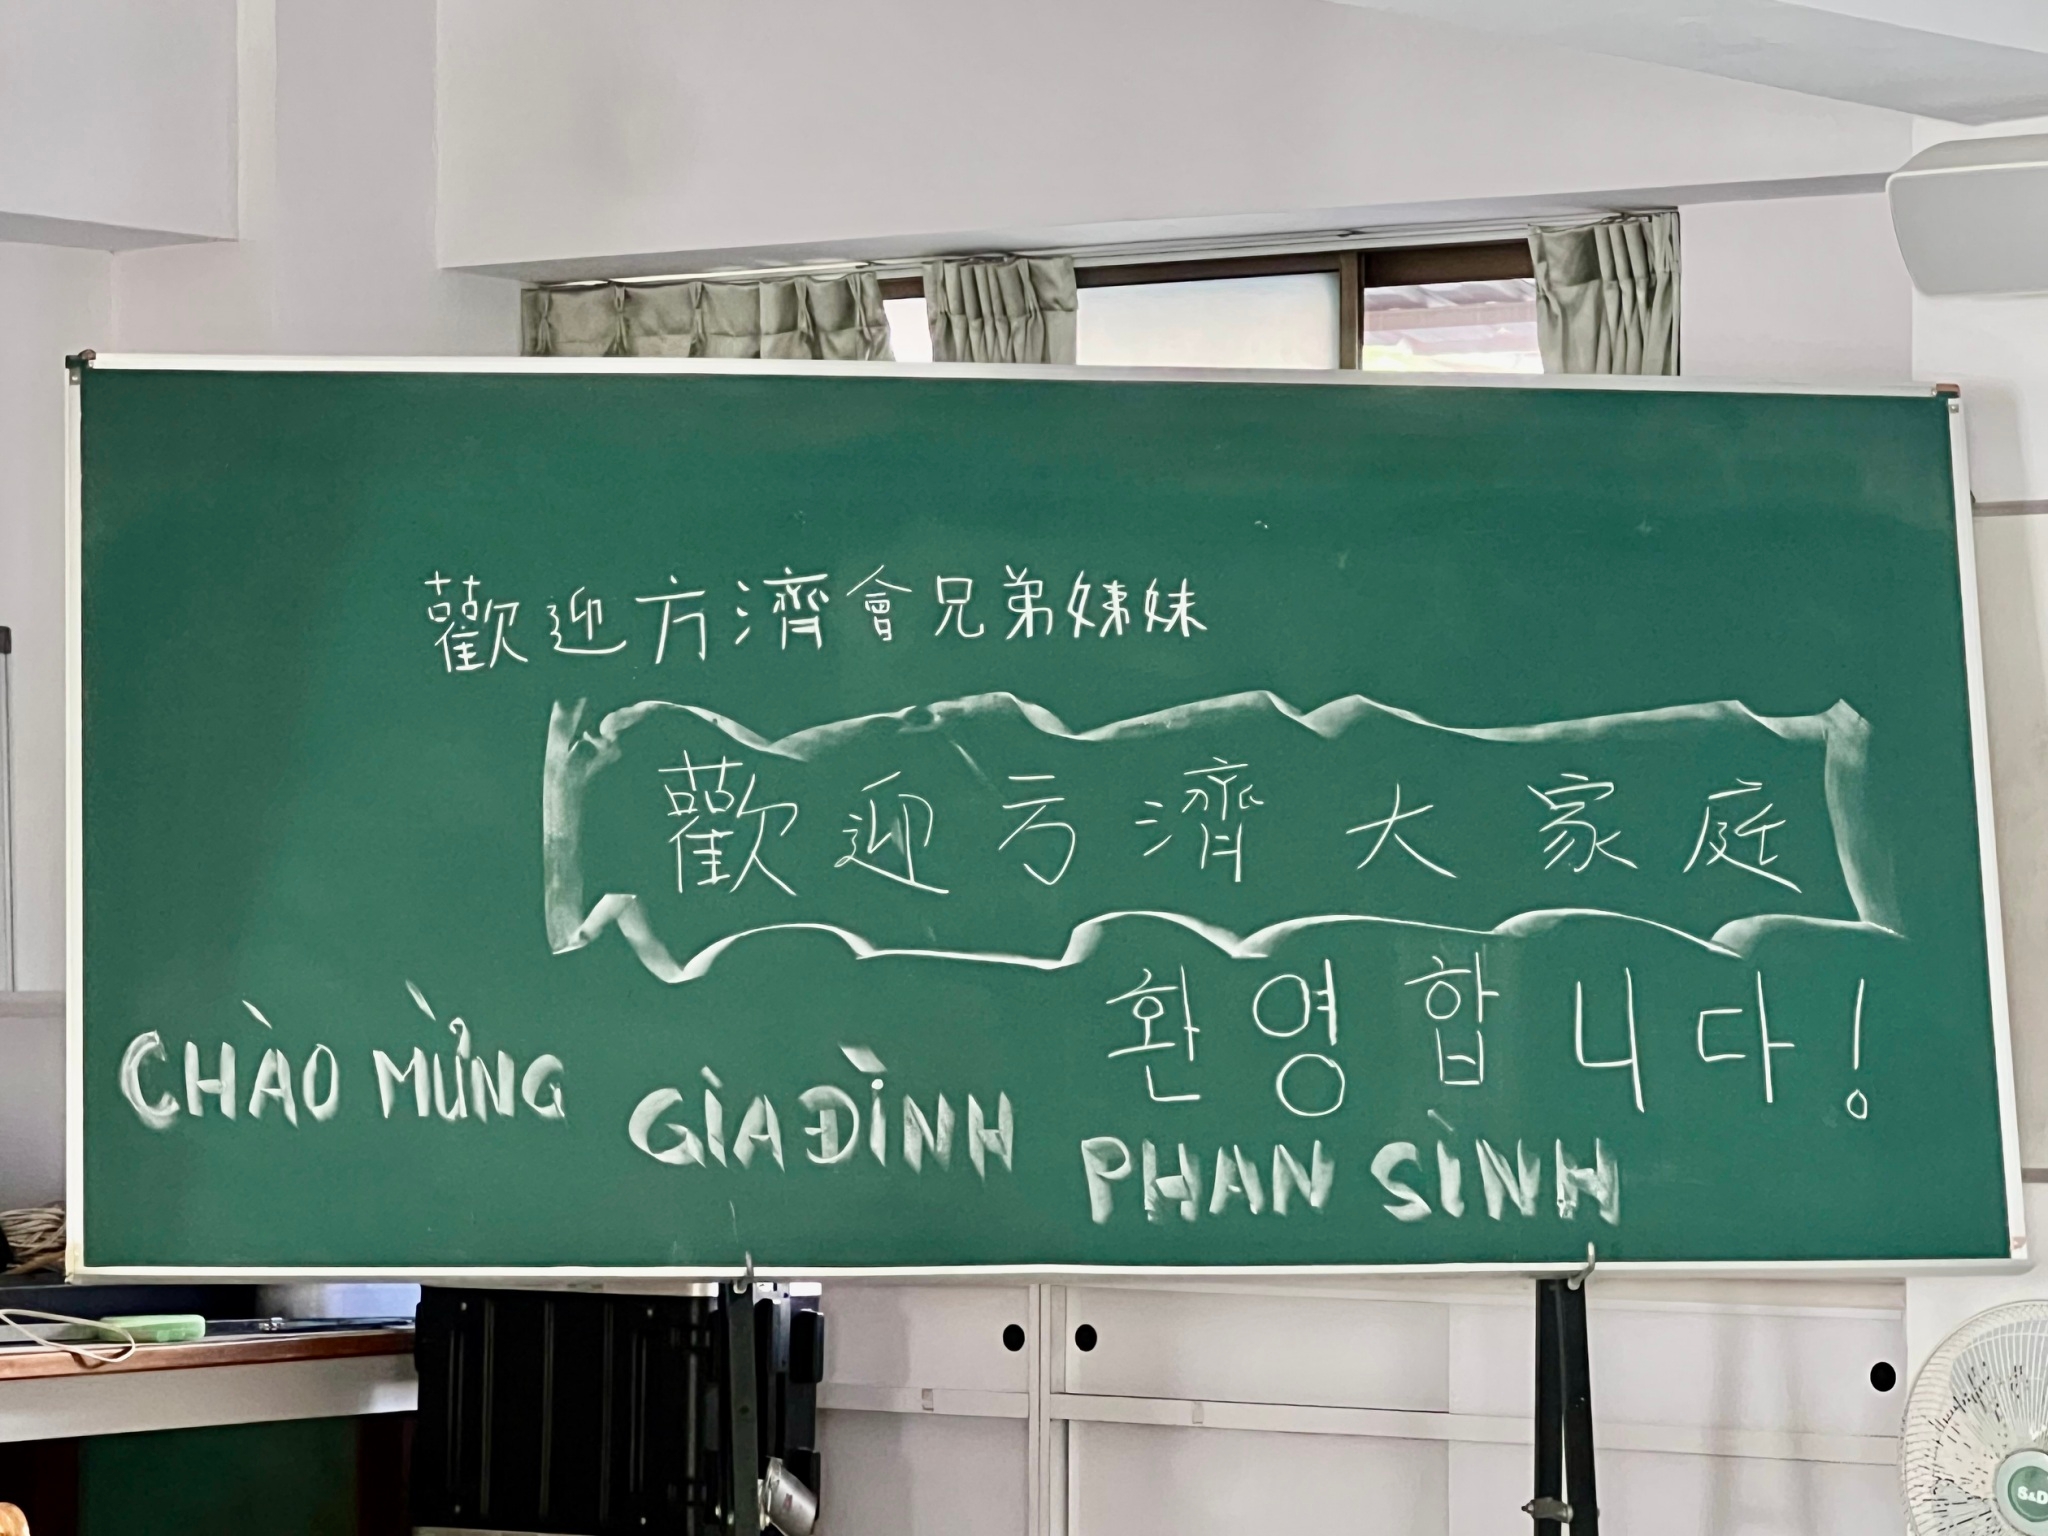 歡迎方濟會兄弟姊妹
歡迎方濟大家庭
환영합니다!
CHÀO MỪNG GÌA ĐÌNH PHAN SÌNH
S&D